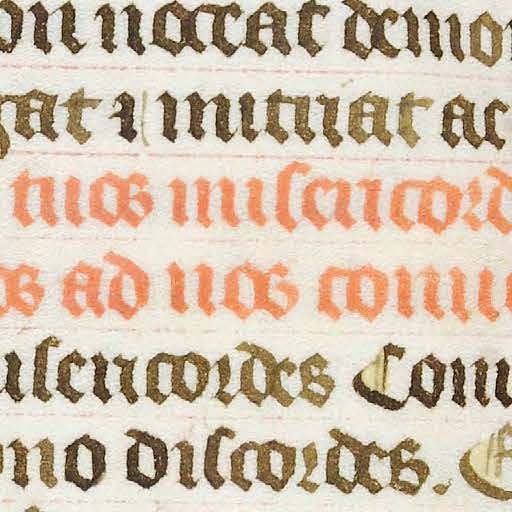 on noceat demo
gat ac
tuos misericord
os ad nos conu
misericordes Conu
ono discordes.